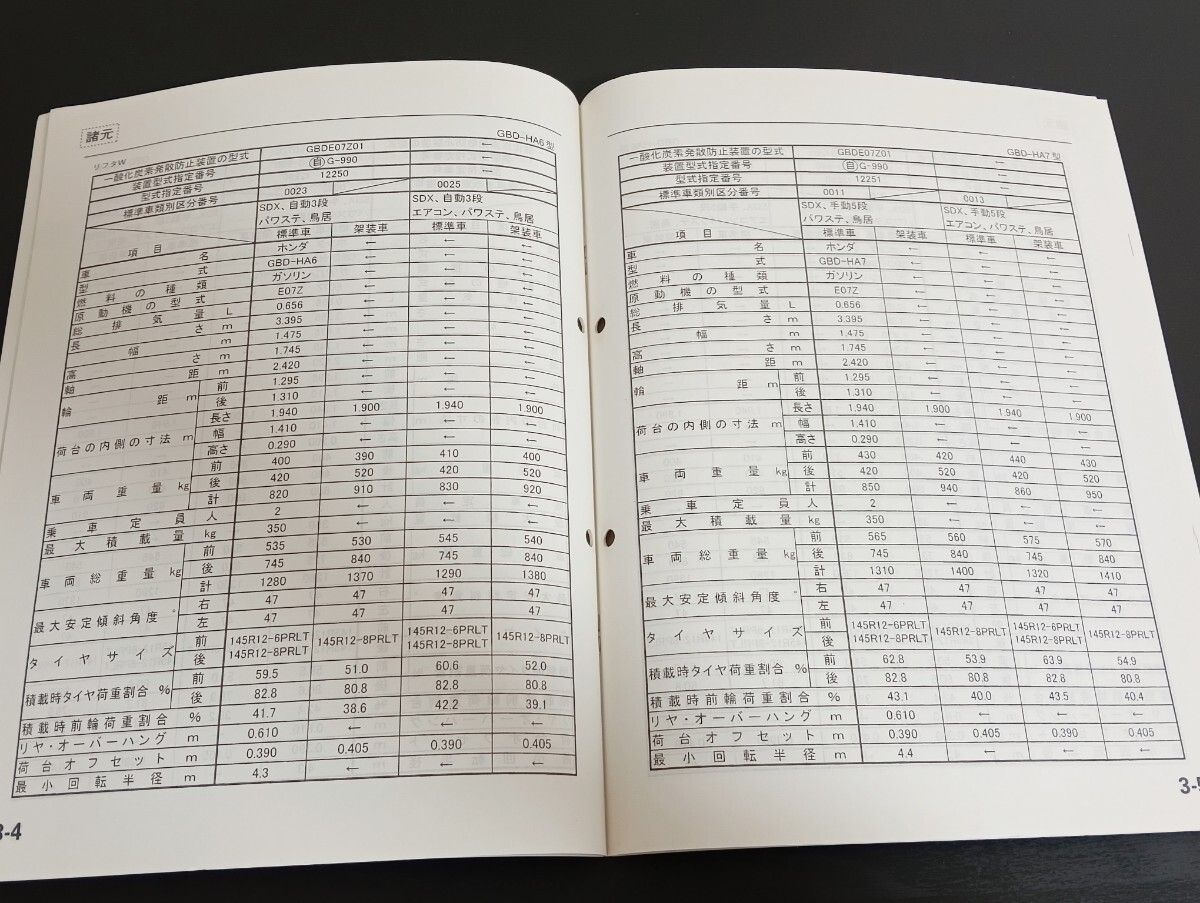 諸元
リフタW
GBD-HA6型
一酸化炭素発散防止装置の型式 GBDE07Z01 ←
装置型式指定番号 (自)G-990 ←
型式指定番号 12250 ←
標準車類別区分番号 0023 0025
SDX、自動3段 SDX、自動3段
パワステ、鳥居 エアコン、パワステ、鳥居
項目 標準車 架装車 標準車 架装車
車名 ホンダ ← ← ←
型式 GBD-HA6 ← ← ←
燃料の種類 ガソリン ← ← ←
原動機の型式 E07Z ← ← ←
総排気量 L 0.656 ← ← ←
長さ m 3.395 ← ← ←
幅 m 1.475 ← ← ←
高さ m 1.745 ← ← ←
軸距 m 2.420 ← ← ←
輪距 m 前 1.295 ← ← ←
後 1.310 ← ← ←
荷台の内側の寸法 m 長さ 1.940 1.900 1.940 1.900
幅 1.410 ← ← ←
高さ 0.290 ← ← ←
車両重量 kg 前 400 390 410 400
後 420 520 420 520
計 820 910 830 920
乗車定員 人 2 ← ← ←
最大積載量 kg 350 ← ← ←
車両総重量 kg 前 535 530 545 540
後 745 840 745 840
計 1280 1370 1290 1380
最大安定傾斜角度 ° 右 47 47 47 47
左 47 47 47 47
タイヤサイズ 前 145R12-6PRLT 145R12-8PRLT 145R12-6PRLT 145R12-8PRLT
後 145R12-8PRLT 145R12-8PRLT
積載時タイヤ荷重割合 % 前 59.5 51.0 60.6 52.0
後 82.8 80.8 82.8 80.8
積載時前輪荷重割合 % 41.7 38.6 42.2 39.1
リヤ・オーバーハング m 0.610 ← ← ←
荷台オフセット m 0.390 0.405 0.390 0.405
最小回転半径 m 4.3 ← ← ←
3-4
GBD-HA7型
一酸化炭素発散防止装置の型式 GBDE07Z01 ←
装置型式指定番号 (自)G-990 ←
型式指定番号 12251 ←
標準車類別区分番号 0011 0013
SDX、手動5段 SDX、手動5段
パワステ、鳥居 エアコン、パワステ、鳥居
項目 標準車 架装車 標準車 架装車
車名 ホンダ ← ← ←
型式 GBD-HA7 ← ← ←
燃料の種類 ガソリン ← ← ←
原動機の型式 E07Z ← ← ←
総排気量 L 0.656 ← ← ←
長さ m 3.395 ← ← ←
幅 m 1.475 ← ← ←
高さ m 1.745 ← ← ←
軸距 m 2.420 ← ← ←
輪距 m 前 1.295 ← ← ←
後 1.310 ← ← ←
荷台の内側の寸法 m 長さ 1.940 1.900 1.940 1.900
幅 1.410 ← ← ←
高さ 0.290 ← ← ←
車両重量 kg 前 430 420 440 430
後 420 520 420 520
計 850 940 860 950
乗車定員 人 2 ← ← ←
最大積載量 kg 350 ← ← ←
車両総重量 kg 前 565 560 575 570
後 745 840 745 840
計 1310 1400 1320 1410
最大安定傾斜角度 ° 右 47 47 47 47
左 47 47 47 47
タイヤサイズ 前 145R12-6PRLT 145R12-8PRLT 145R12-6PRLT 145R12-8PRLT
後 145R12-8PRLT 145R12-8PRLT
積載時タイヤ荷重割合 % 前 62.8 53.9 63.9 54.9
後 82.8 80.8 82.8 80.8
積載時前輪荷重割合 % 43.1 40.0 43.5 40.4
リヤ・オーバーハング m 0.610 ← ← ←
荷台オフセット m 0.390 0.405 0.390 0.405
最小回転半径 m 4.4 ← ← ←
3-5